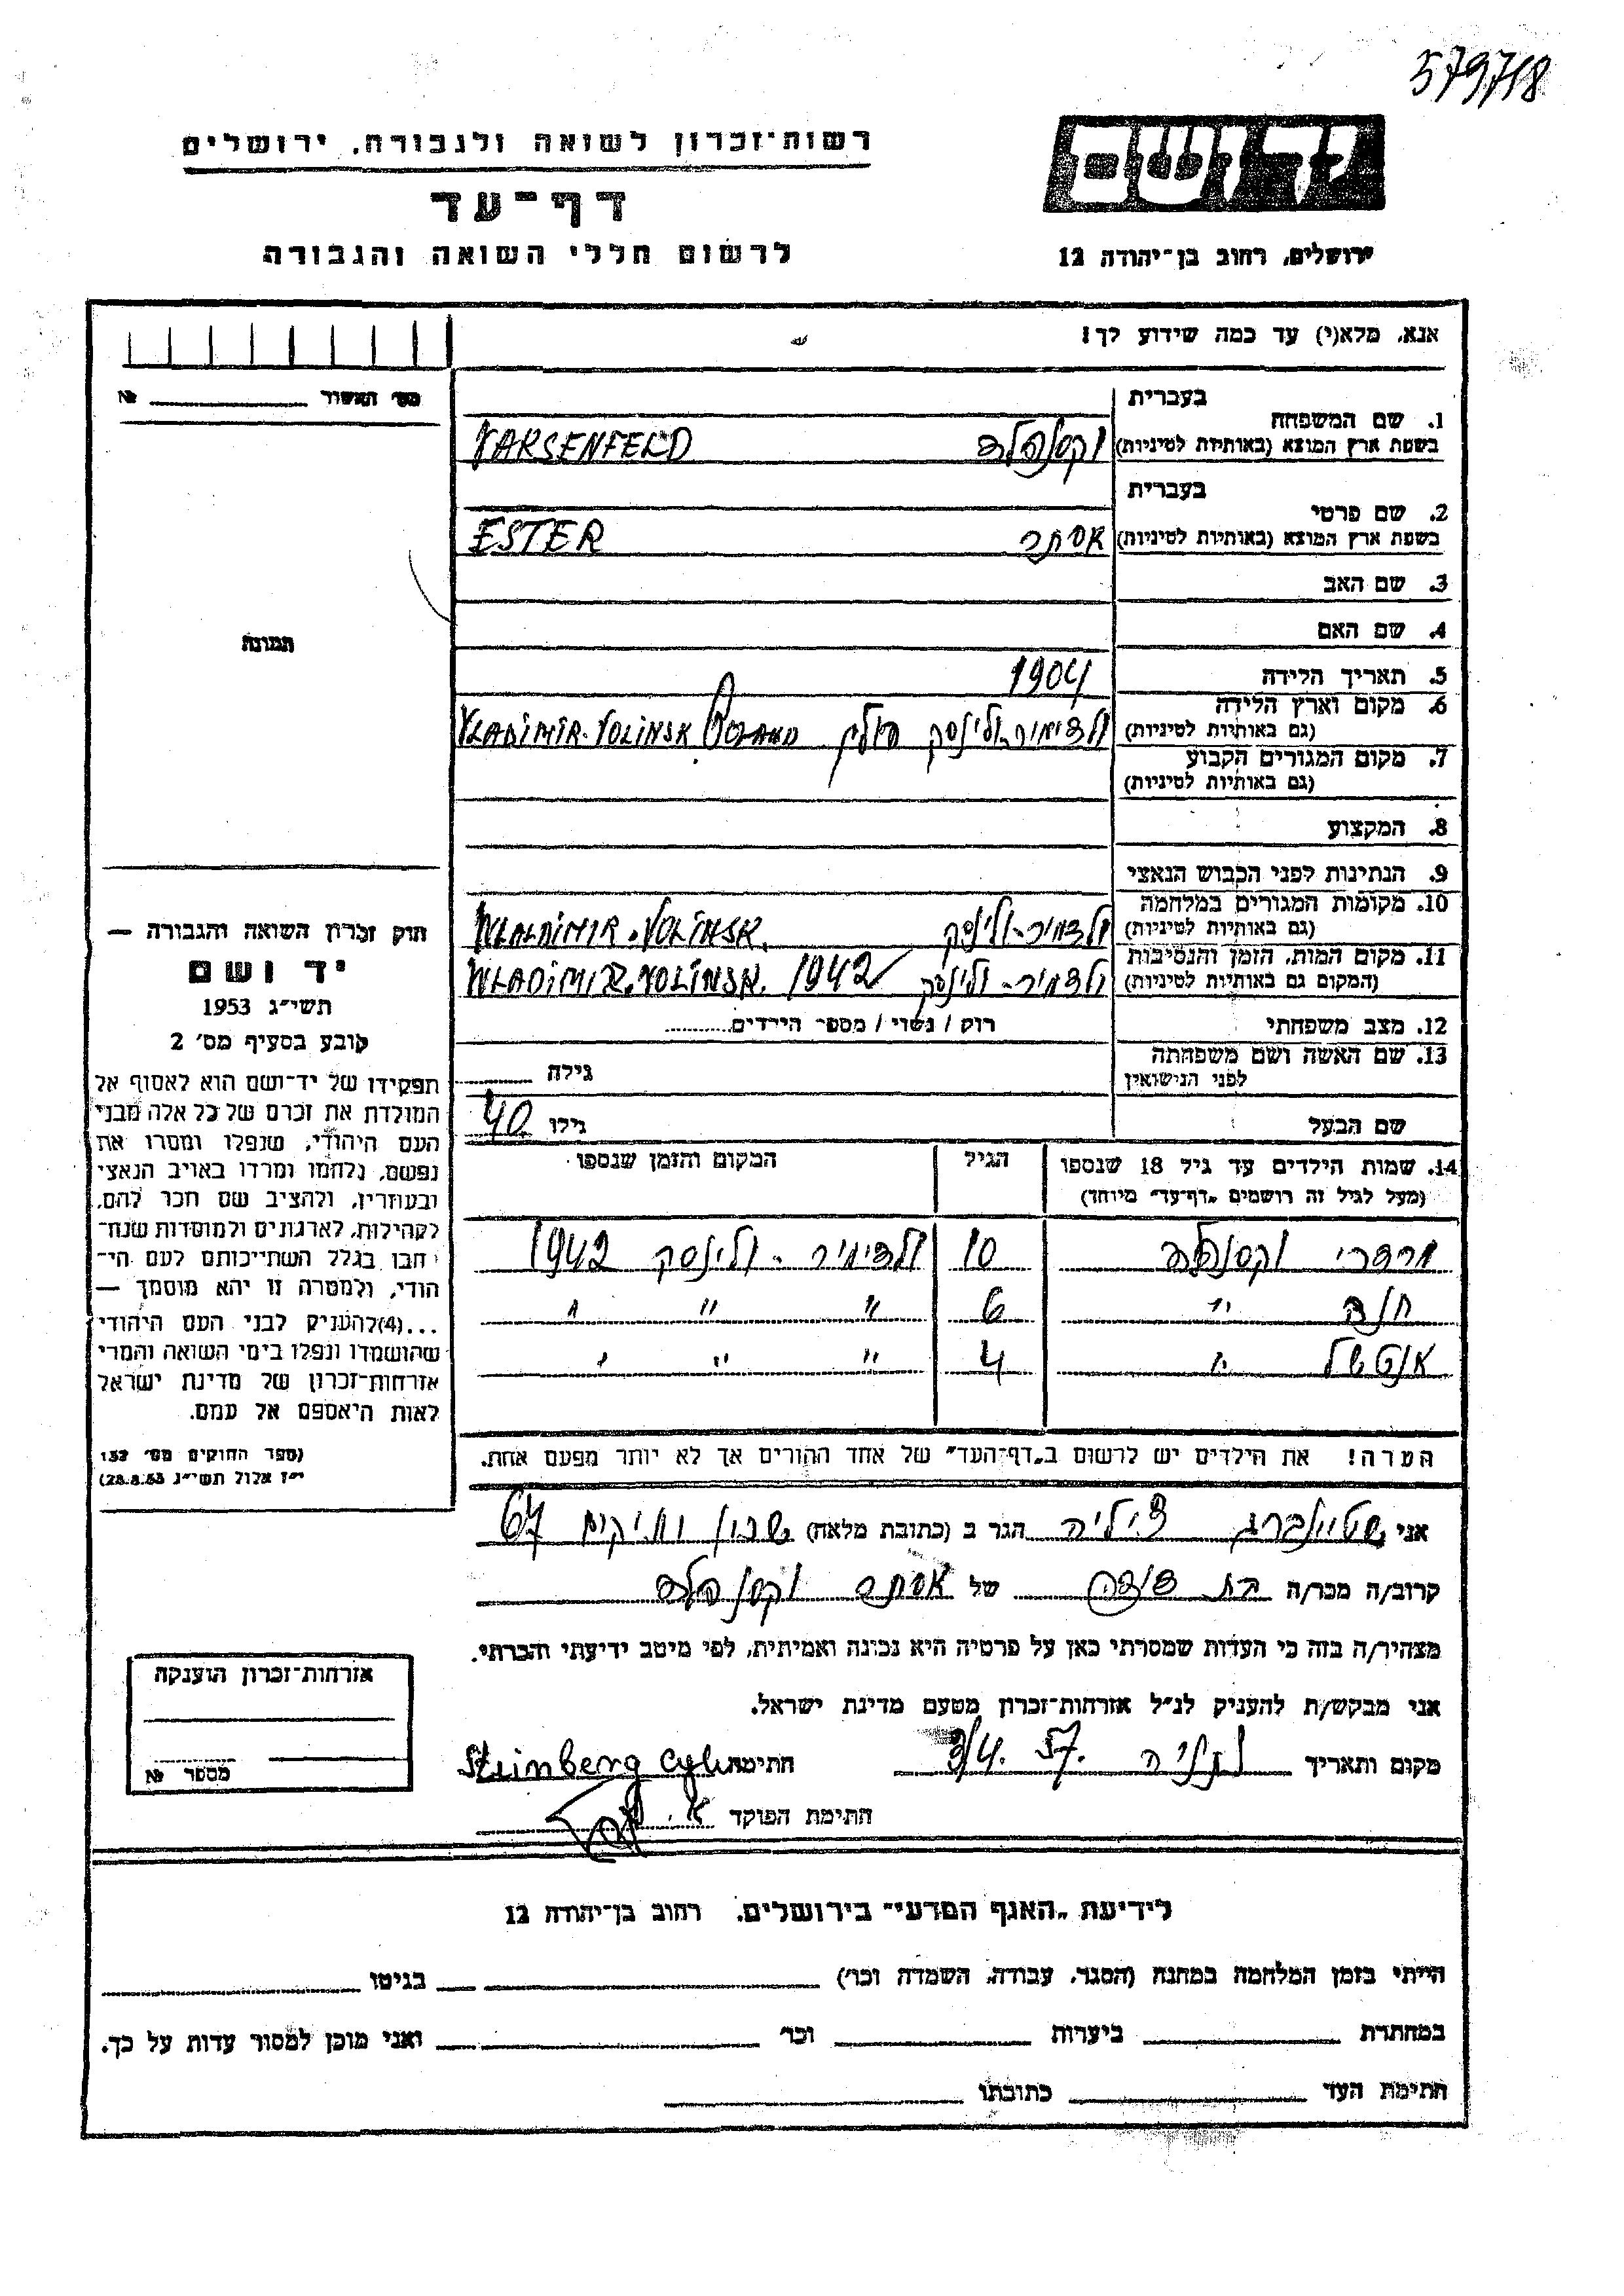 579718
יד ושם
רשות־זכרון לשואה ולגבורה, ירושלים
דף־עד
לרשום חללי השואה והגבורה
ירושלים, רחוב בן־יהודה 12
אנא, מלא(י) עד כמה שידוע לך!
מס' האשור № 
1. שם המשפחה בעברית
בשפת ארץ המוצא (באותיות לטיניות) וקסנפלד VARSENFELD
2. שם פרטי בעברית
בשפת ארץ המוצא (באותיות לטיניות) אסתר ESTER
3. שם האב
4. שם האם
תמונה
5. תאריך הלידה 1904
6. מקום וארץ הלידה
(גם באותיות לטיניות) ולדימיר-ולינסק פולין VLADIMIR-VOLINSK POLAND
7. מקום המגורים הקבוע
(גם באותיות לטיניות)
8. המקצוע
9. הנתינות לפני הכבוש הנאצי
10. מקומות המגורים במלחמה
(גם באותיות לטיניות) ולדמיר-ולינסק WLADIMIR-VOLINSK.
11. מקום המות, הזמן והנסיבות
(המקום גם באותיות לטיניות) ולדמיר-ולינסק WLADIMIR.VOLINSK. 1942
12. מצב משפחתי רוק / נשוי / מספר הילדים
13. שם האשה ושם משפחתה
לפני הנישואין גילה
שם הבעל גילו 40
14. שמות הילדים עד גיל 18 שנספו הגיל המקום והזמן שנספו
(מעל לגיל זה רושמים „דף־עד" מיוחד)
וקסנפלד 10 ולדימיר-ולינסק 1942
חנה " 6 " " "
" 4 " " "
הערה! את הילדים יש לרשום ב„דף־העד" של אחד ההורים אך לא יותר מפעם אחת.
חוק זכרון השואה והגבורה —
יד ושם
תשי"ג 1953
קובע בסעיף מס' 2
תפקידו של יד־ושם הוא לאסוף אל
המולדת את זכרם של כל אלה מבני
העם היהודי, שנפלו ומסרו את
נפשם, נלחמו ומרדו באויב הנאצי
ובעוזריו, ולהציב שם וזכר להם,
לקהילות, לארגונים ולמוסדות שנח־
רבו בגלל השתייכותם לעם הי־
הודי, ולמטרה זו יהא מוסמך —
...(4) להעניק לבני העם היהודי
שהושמדו ונפלו בימי השואה והמרי
אזרחות־זכרון של מדינת ישראל
לאות היאספם אל עמם.
(ספר החוקים מס' 132
י"ז אלול תשי"ג 28.8.53)
אני שטיינברג ציליה הגר ב (כתובת מלאה) שכון ותיקים 67
קרוב/ה מכר/ה בת דודה של אסתר וקסנפלד
מצהיר/ה בזה כי העדות שמסרתי כאן על פרטיה היא נכונה ואמיתית, לפי מיטב ידיעתי והכרתי.
אני מבקש/ת להעניק לנ"ל אזרחות־זכרון מטעם מדינת ישראל.
מקום ותאריך נתניה 3/4. 57. חתימה Steinberg
חתימת הפוקד
אזרחות־זכרון הוענקה
מספר №
לידיעת „האגף המדעי" בירושלים, רחוב בן־יהודה 12
הייתי בזמן המלחמה במחנה (הסגר, עבודה, השמדה וכו') בגיטו
במחתרת ביערות וכו' ואני מוכן למסור עדות על כך.
חתימת העד כתובתו